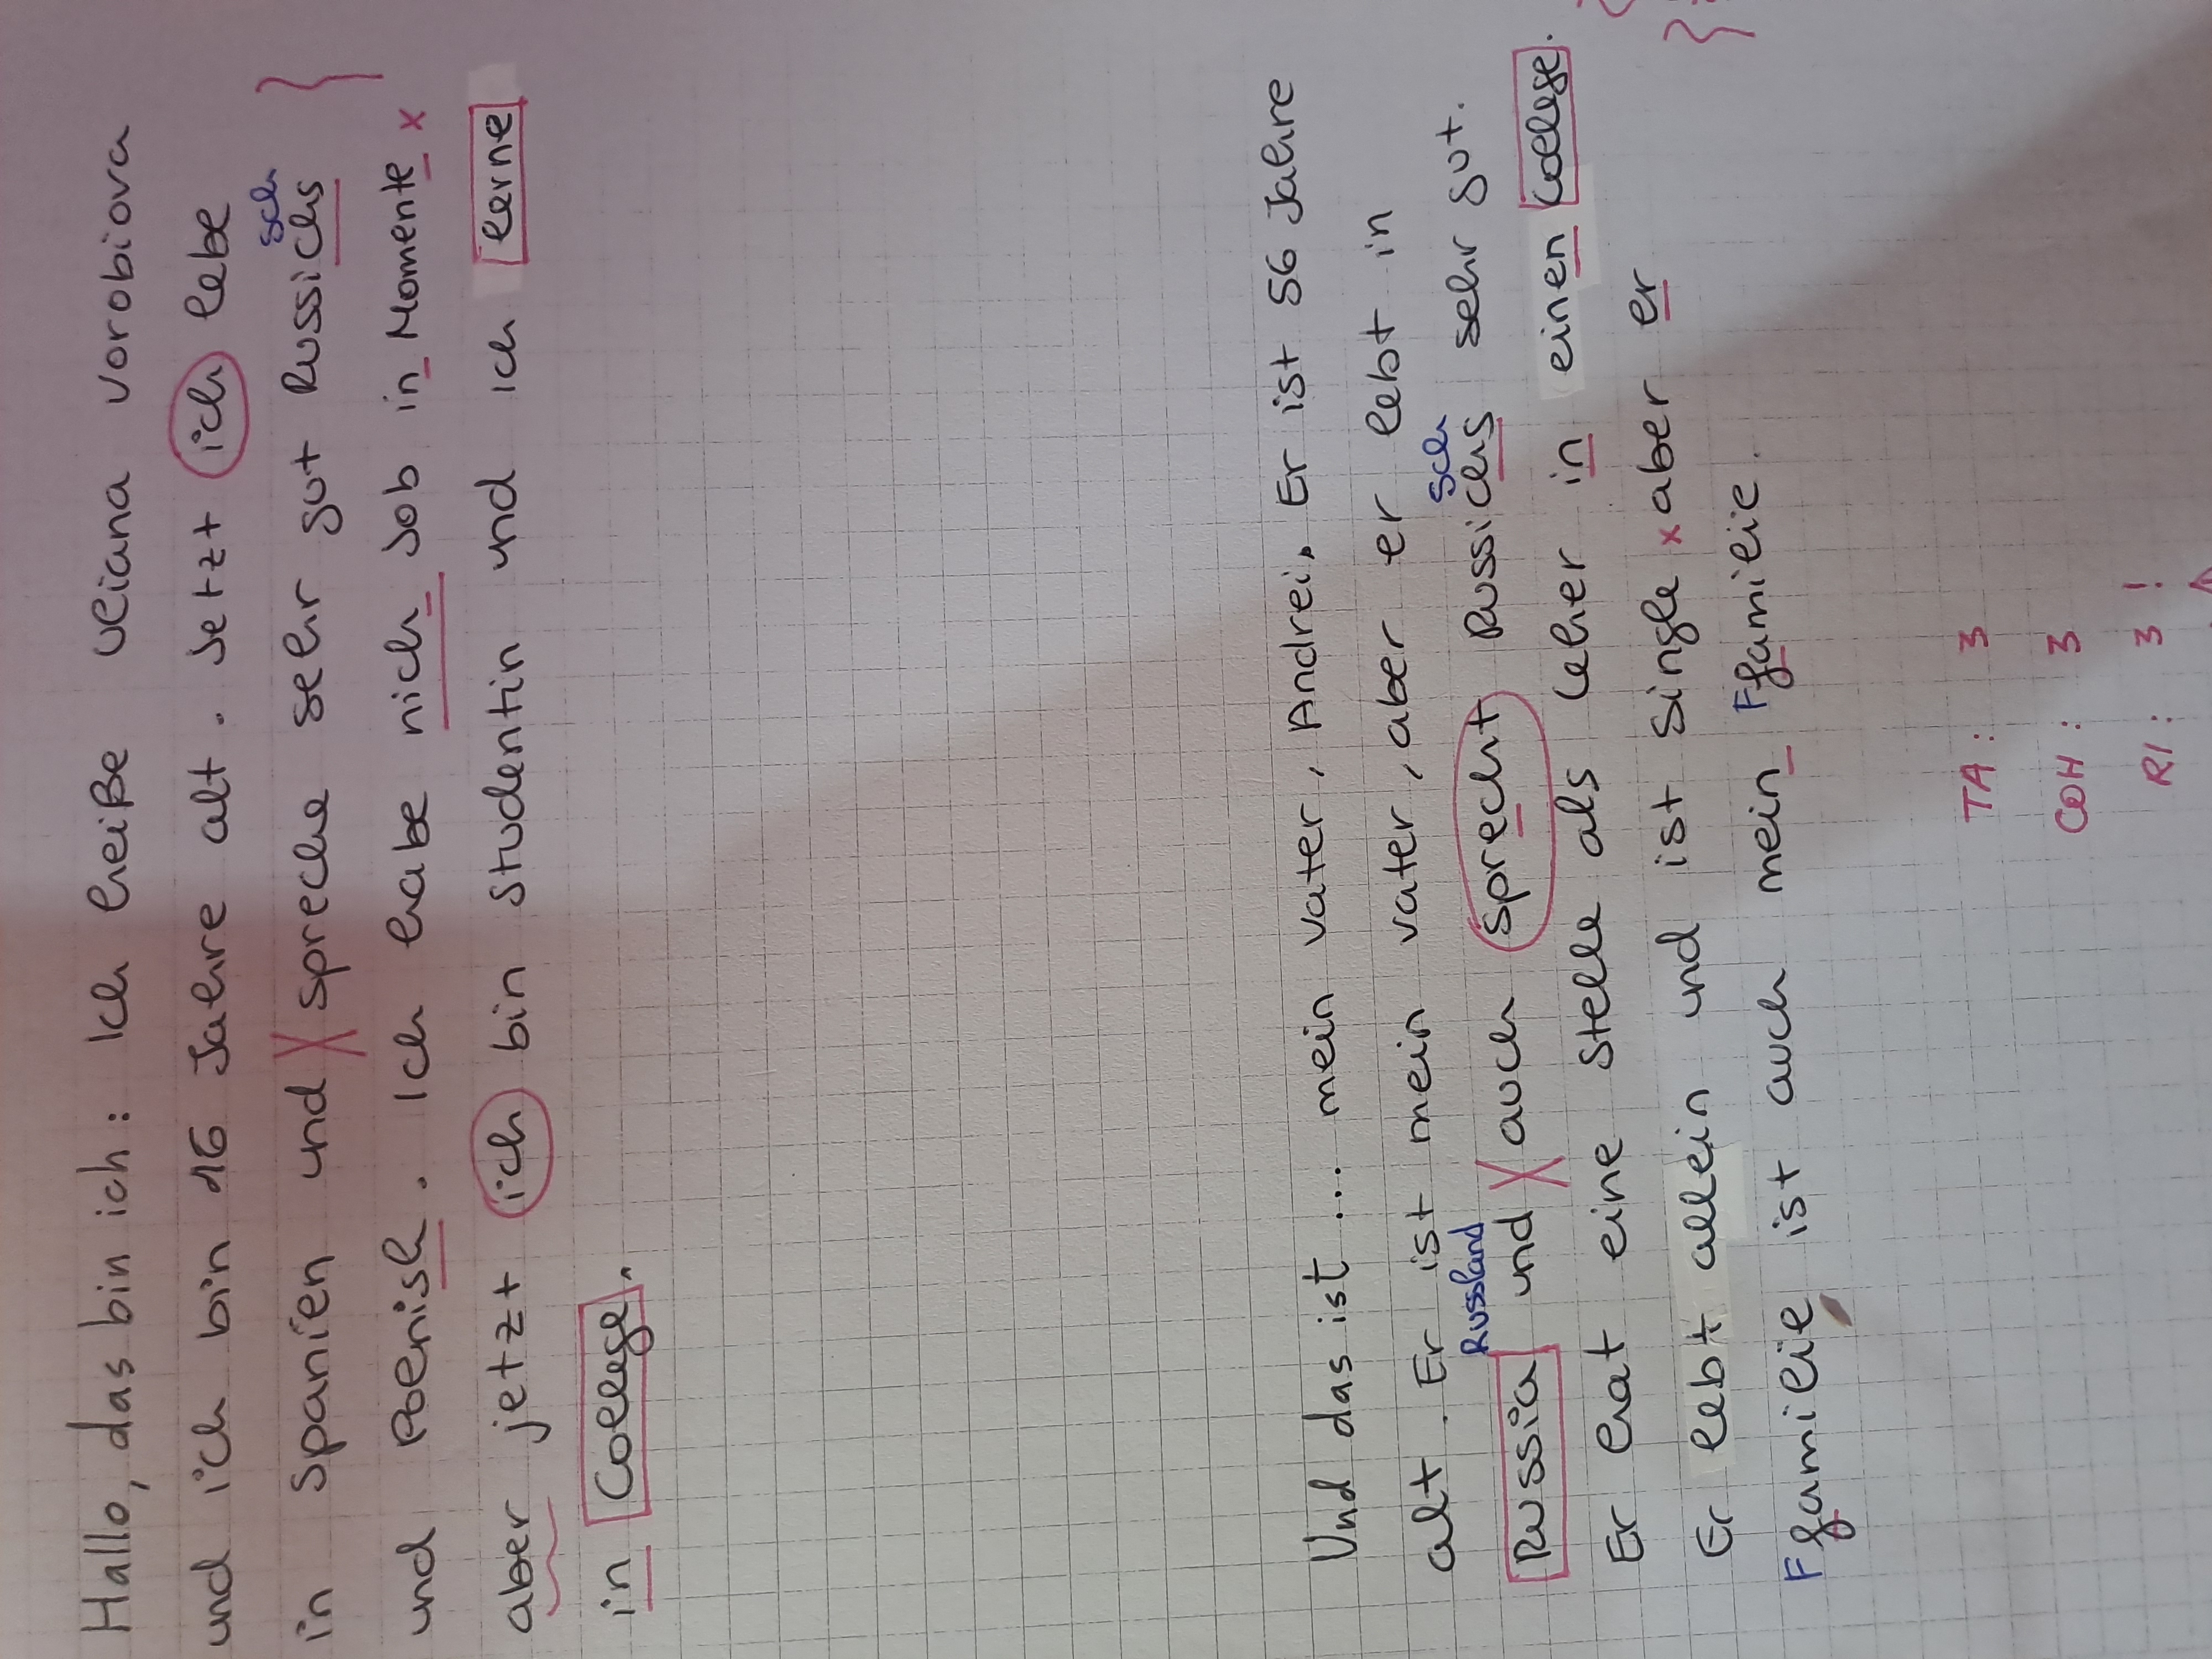 Hallo, das bin ich: Ich heiße Uliana Vorobiova
und ich bin 16 Jahre alt. Jetzt ich lebe
sch
in Spanien und X spreche sehr gut Russichs
und Polnish. Ich habe nich Job in Momente x
aber jetzt ich bin Studentin und ich lerne
in College.
Und das ist ... mein Vater, Andrei. Er ist 56 Jahre
alt. Er ist mein Vater, aber er lebt in
Russland sch
Russia und X auch sprecht Russichs sehr gut.
Er hat eine Stelle als Leher in einen College.
Er lebt allein und ist Single x aber er
F familie ist auch mein F familie.
TA: 3
COH: 3
RI: 3 !